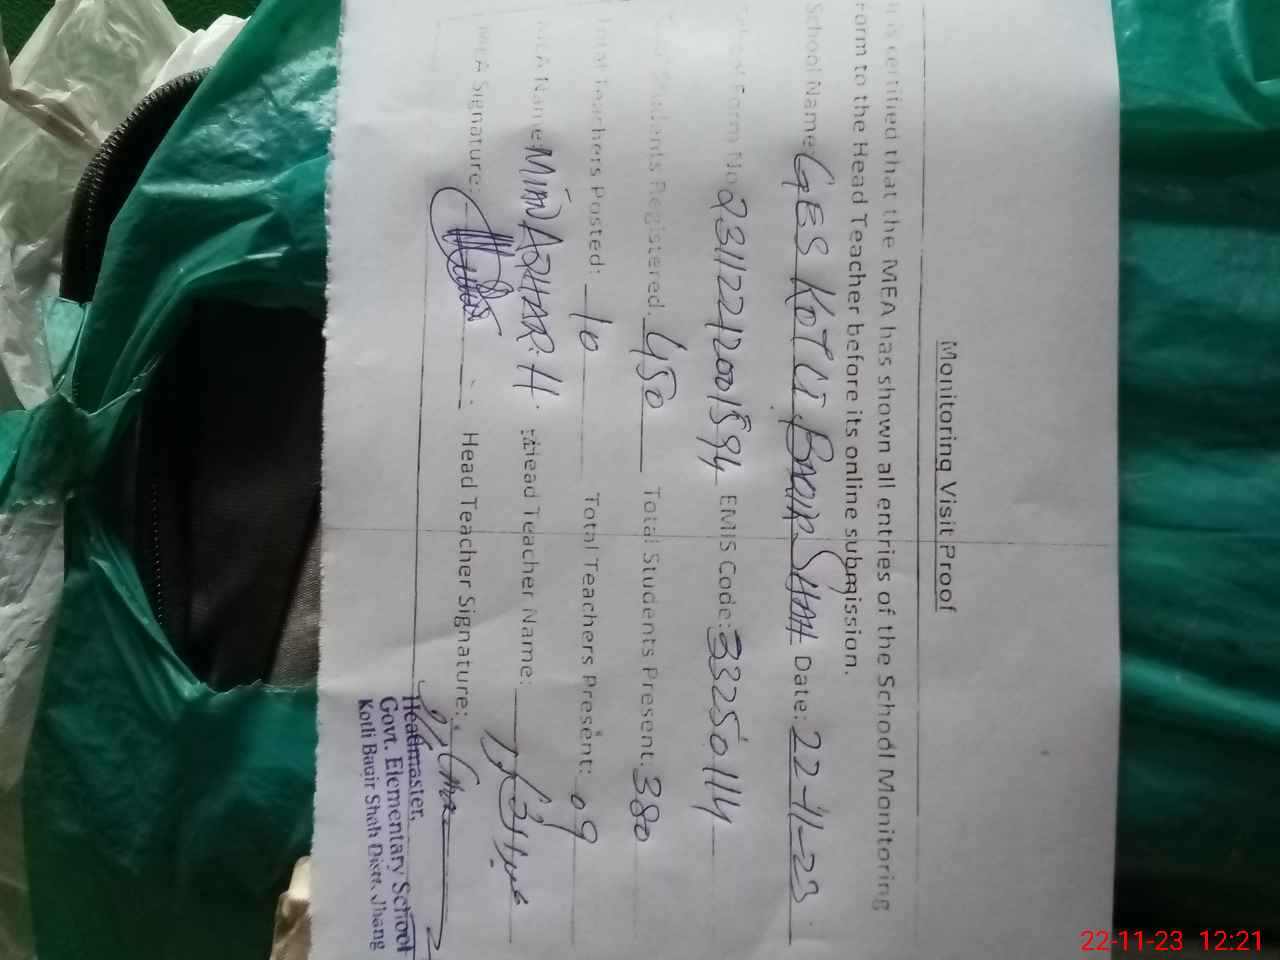 Monitoring Visit Proof
It is certified that the MEA has shown all entries of the School Monitoring
Form to the Head Teacher before its online submission.
School Name: GES KOTLI BAQIR SHAH Date: 22-11-23
Form No. EMIS Code: 33250114
Students Registered: 450 Total Students Present: 380
Total Teachers Posted: 10 Total Teachers Present: 09
MEA Name: MIAN AZHAR. H. Head Teacher Name:
MEA Signature: Head Teacher Signature:
Headmaster,
Govt. Elementary School
Kotli Bauir Shah Distt. Jhang
22-11-23 12:21